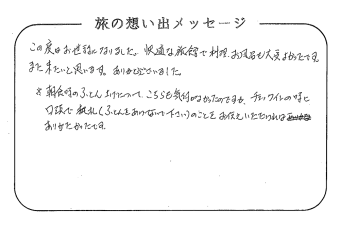 旅の想い出メッセージ
この度はお世話になりました。快適な旅館で料理、お風呂も大変よかったです。
また来たいと思います。ありがとうございました。
※朝食時のふとん上げについて、こちらも気付かなかったのですが、チェックインの時に
口頭で 札(ふとんをあげないで下さい)のことをお伝えいただければ
ありがたかったです。